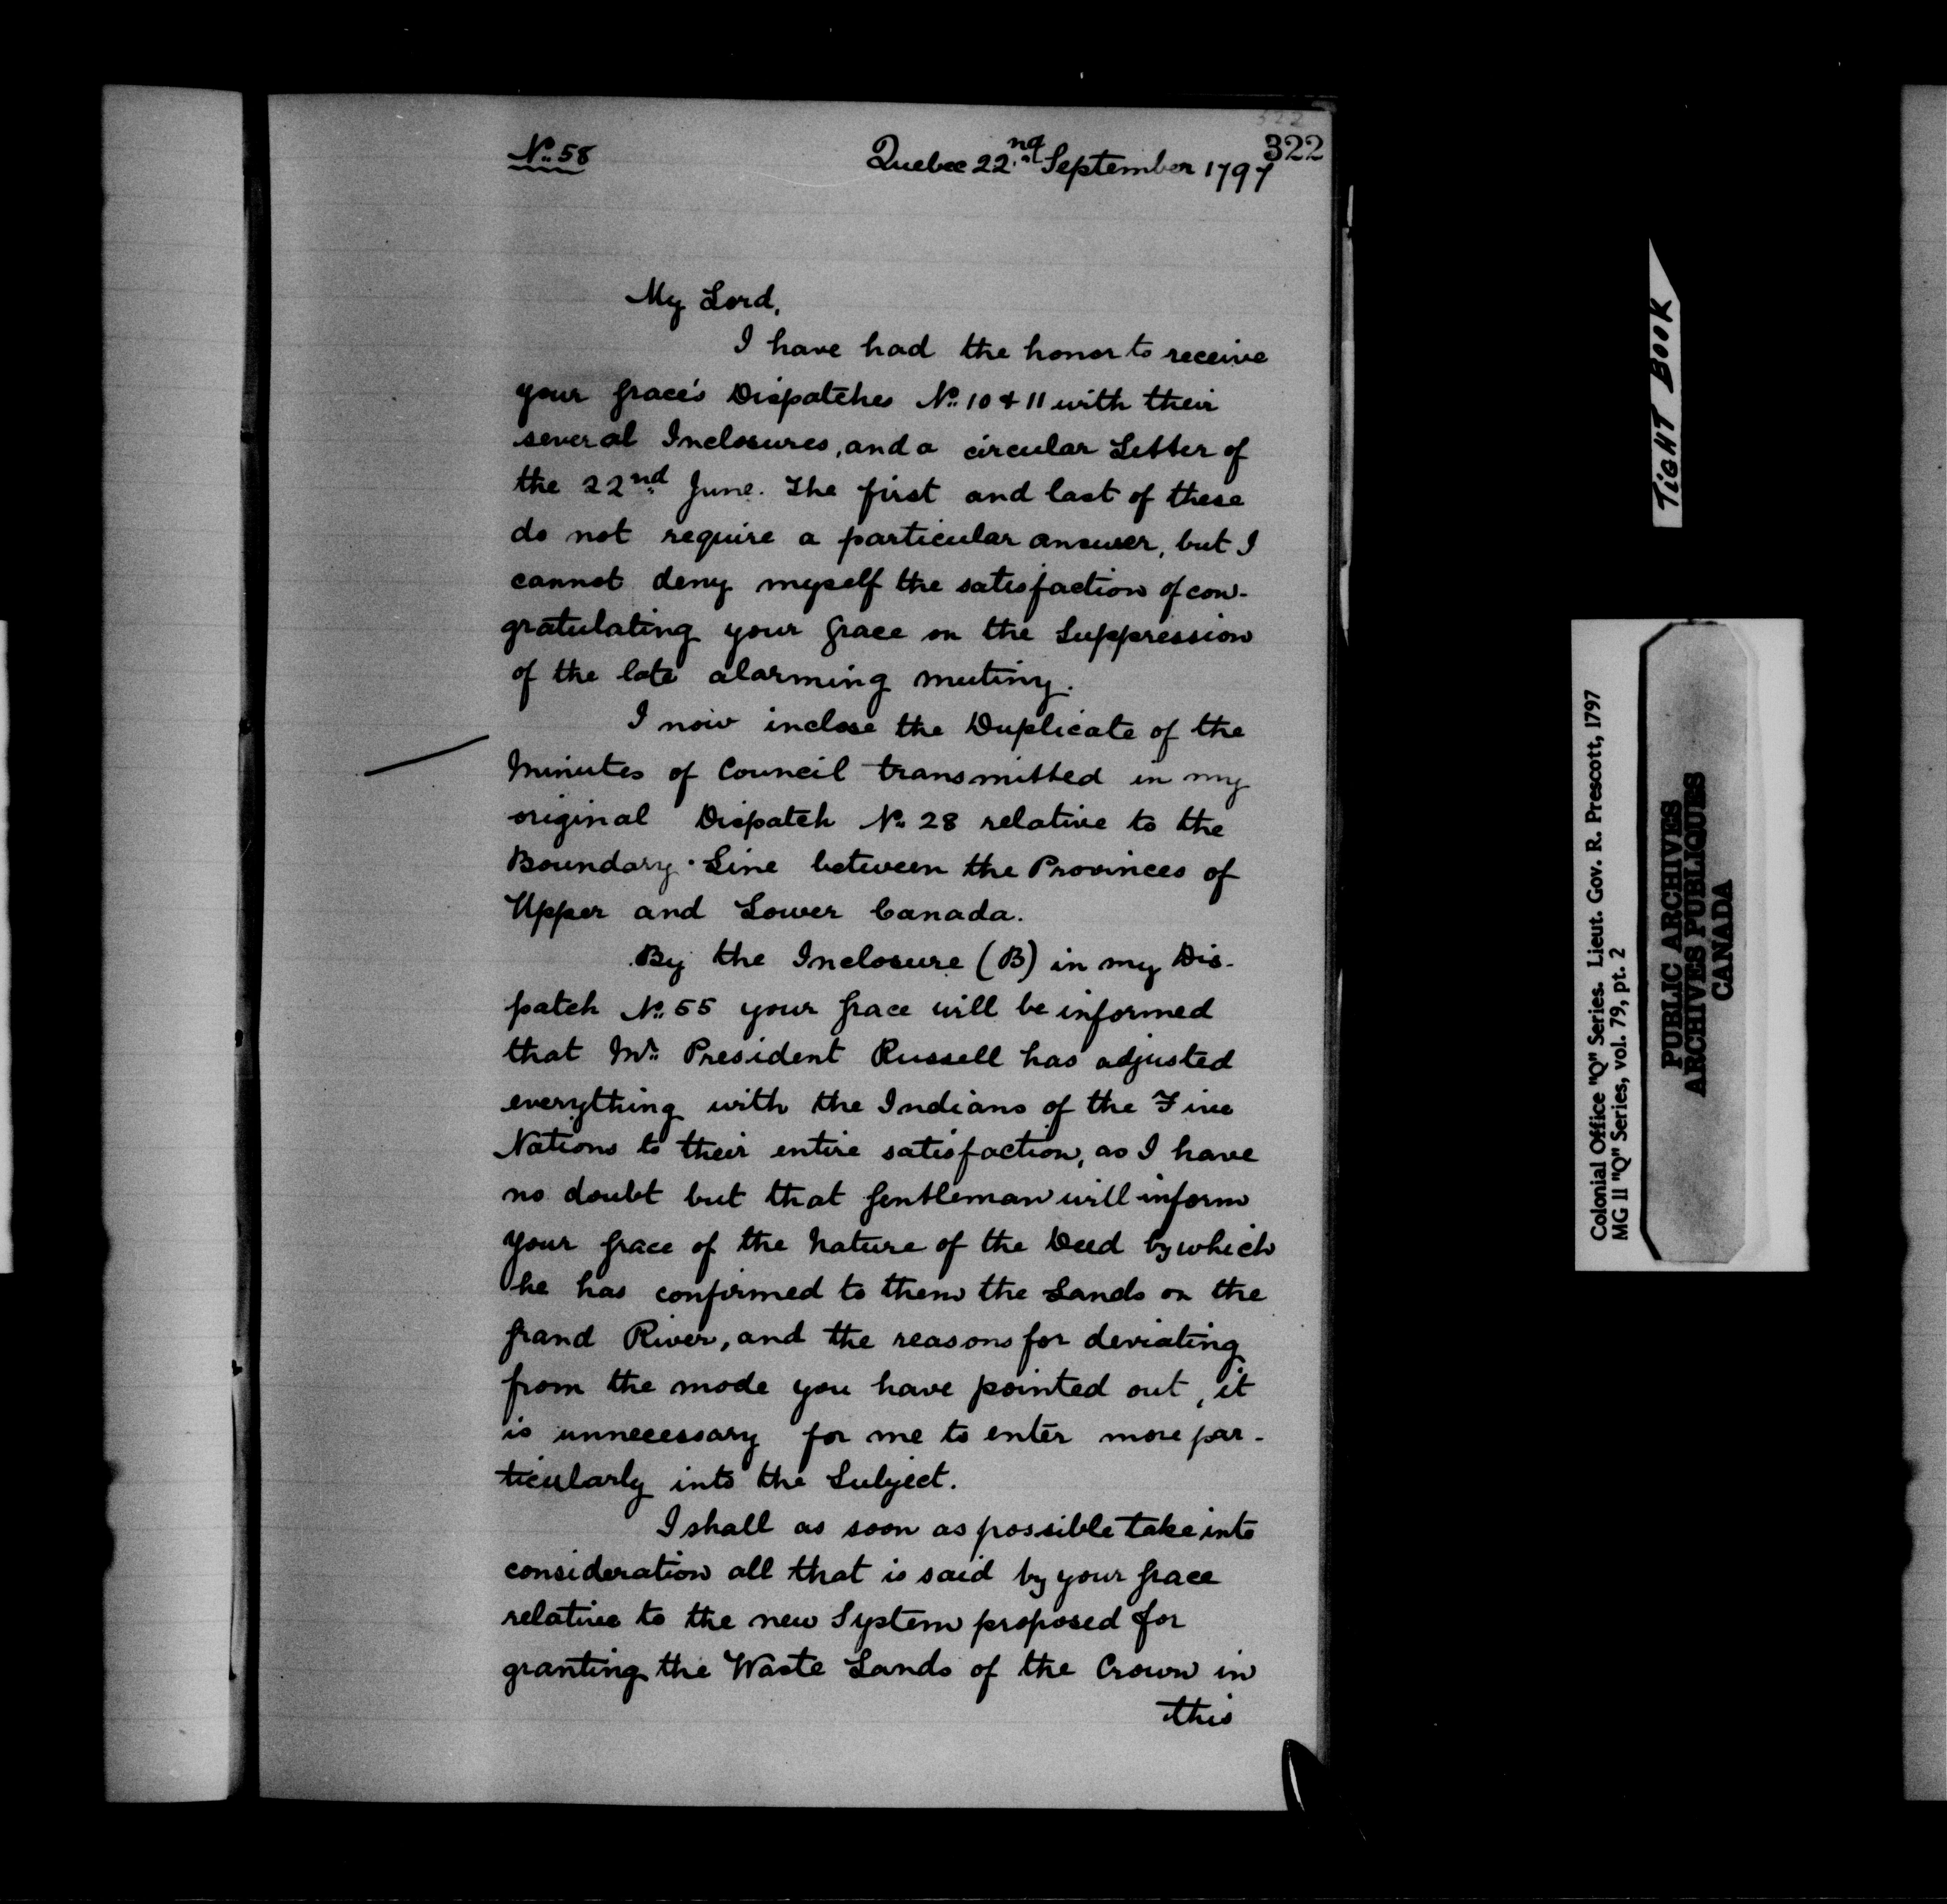 322
322
No. 58
Quebec 22nd September 1797
My Lord,
I have had the honor to receive
your Grace's Dispatches No. 10 & 11 with their
several Inclosures, and a circular Letter of
the 22nd June. The first and last of these
do not require a particular answer, but I
cannot deny myself the satisfaction of con-
gratulating your Grace on the Suppression
of the late alarming mutiny.
I now inclose the Duplicate of the
Minutes of Council transmitted in my
original Dispatch No. 28 relative to the
Boundary-Line between the Provinces of
Upper and Lower Canada.
By the Inclosure (B) in my Dis-
patch No. 55 your Grace will be informed
that Mr. President Russell has adjusted
everything with the Indians of the Five
Nations to their entire satisfaction, as I have
no doubt but that Gentleman will inform
your Grace of the Nature of the Deed by which
he has confirmed to them the Lands on the
Grand River, and the reasons for deviating
from the mode you have pointed out, it
is unnecessary for me to enter more par-
ticularly into the Subject.
I shall as soon as possible take into
consideration all that is said by your Grace
relative to the new System proposed for
granting the Waste Lands of the Crown in
this
TIGHT BOOK
Colonial Office "Q" Series. Lieut. Gov. R. Prescott, 1797
MG 11 "Q" Series, vol. 79, pt. 2
PUBLIC ARCHIVES
ARCHIVES PUBLIQUES
CANADA